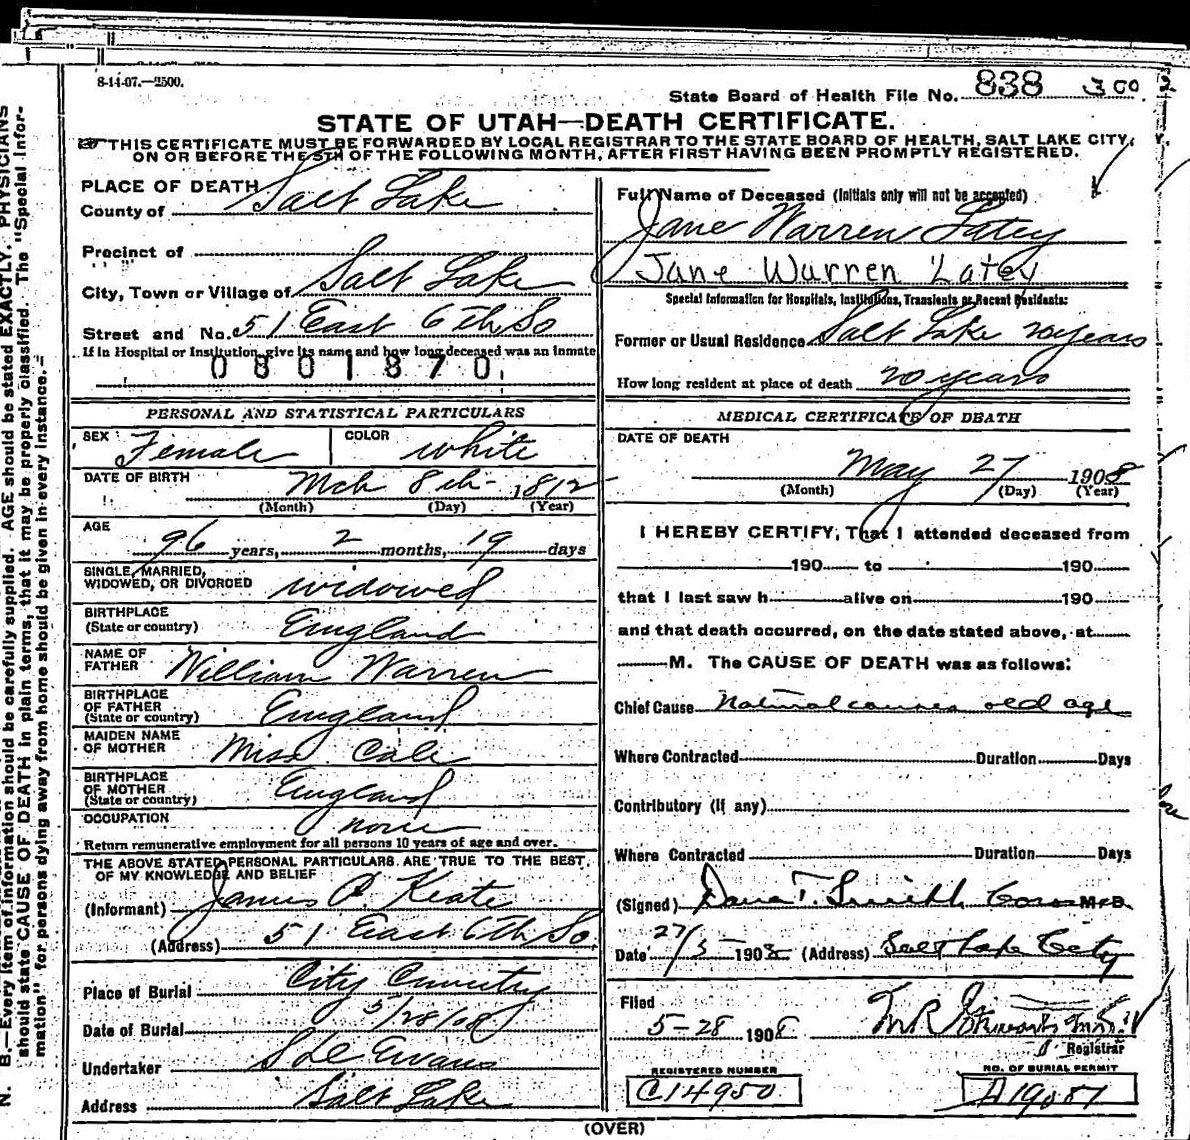 8-14-07.—2500.
State Board of Health File No. 838 300
STATE OF UTAH—DEATH CERTIFICATE.
THIS CERTIFICATE MUST BE FORWARDED BY LOCAL REGISTRAR TO THE STATE BOARD OF HEALTH, SALT LAKE CITY,
ON OR BEFORE THE 5TH OF THE FOLLOWING MONTH, AFTER FIRST HAVING BEEN PROMPTLY REGISTERED.
PLACE OF DEATH
County of Salt Lake
Precinct of
City, Town or Village of Salt Lake
Street and No. 51 East 6th So
If in Hospital or Institution, give its name and how long deceased was an inmate
0801870
PERSONAL AND STATISTICAL PARTICULARS
SEX Female COLOR white
DATE OF BIRTH Mch 8th 1812
(Month) (Day) (Year)
AGE 96 years, 2 months, 19 days
SINGLE, MARRIED,
WIDOWED, OR DIVORCED widowed
BIRTHPLACE
(State or country) England
NAME OF
FATHER William Warren
BIRTHPLACE
OF FATHER
(State or country) England
MAIDEN NAME
OF MOTHER Miss Cale
BIRTHPLACE
OF MOTHER
(State or country) England
OCCUPATION none
Return remunerative employment for all persons 10 years of age and over.
THE ABOVE STATED PERSONAL PARTICULARS ARE TRUE TO THE BEST
OF MY KNOWLEDGE AND BELIEF
(Informant) James P Keate
(Address) 51 East 6th So.
Place of Burial City Cemetry
Date of Burial 5/28/08
Undertaker S D Evans
Address Salt Lake
Full Name of Deceased (Initials only will not be accepted)
Jane Warren Latey
Jane Warren Latey
Special Information for Hospitals, Institutions, Transients or Recent Residents:
Former or Usual Residence Salt Lake 20 years
How long resident at place of death 20 years
MEDICAL CERTIFICATE OF DEATH
DATE OF DEATH
May 27 1908
(Month) (Day) (Year)
I HEREBY CERTIFY, That I attended deceased from
190 to 190
that I last saw h alive on 190
and that death occurred, on the date stated above, at
M. The CAUSE OF DEATH was as follows:
Chief Cause Natural causes old age
Where Contracted Duration Days
Contributory (if any)
Where Contracted Duration Days
(Signed) Dana T. Smith Coro M.D.
Date 27/5 1908 (Address) Salt Lake City
Filed
5-28 1908
Registrar
REGISTERED NUMBER
C14950
NO. OF BURIAL PERMIT
A19087
(OVER)
N. B.—Every item of information should be carefully supplied. AGE should be stated EXACTLY. PHYSICIANS
should state CAUSE OF DEATH in plain terms, that it may be properly classified. The "Special Infor-
mation" for persons dying away from home should be given in every instance."